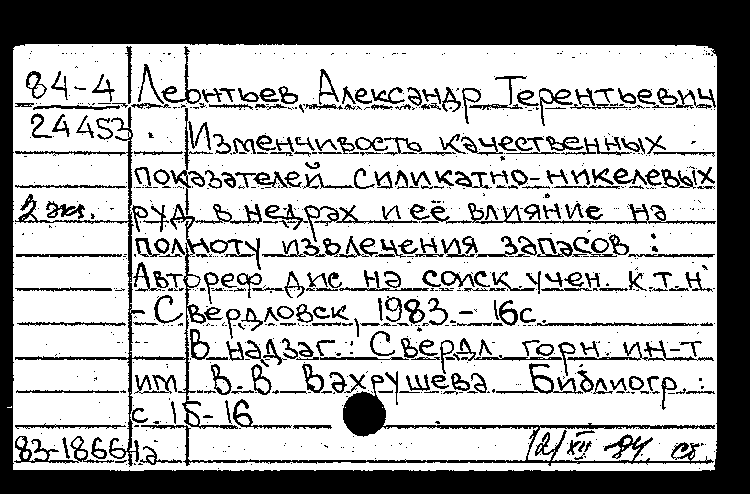 84-4 Леонтьев, Александр Терентьевич
24453. Изменчивость качественных
показателей силикатно-никелевых
2 экз. руд в недрах и её влияние на
полноту извлечения запасов :
Автореф дис на соиск учен. к.т.н
- Свердловск, 1983.- 16с.
В надзаг.: Свердл. горн. ин-т
им В.В. Вахрушева. Библиогр.:
с. 15-16
83-18664а 12/XII 84. сб.